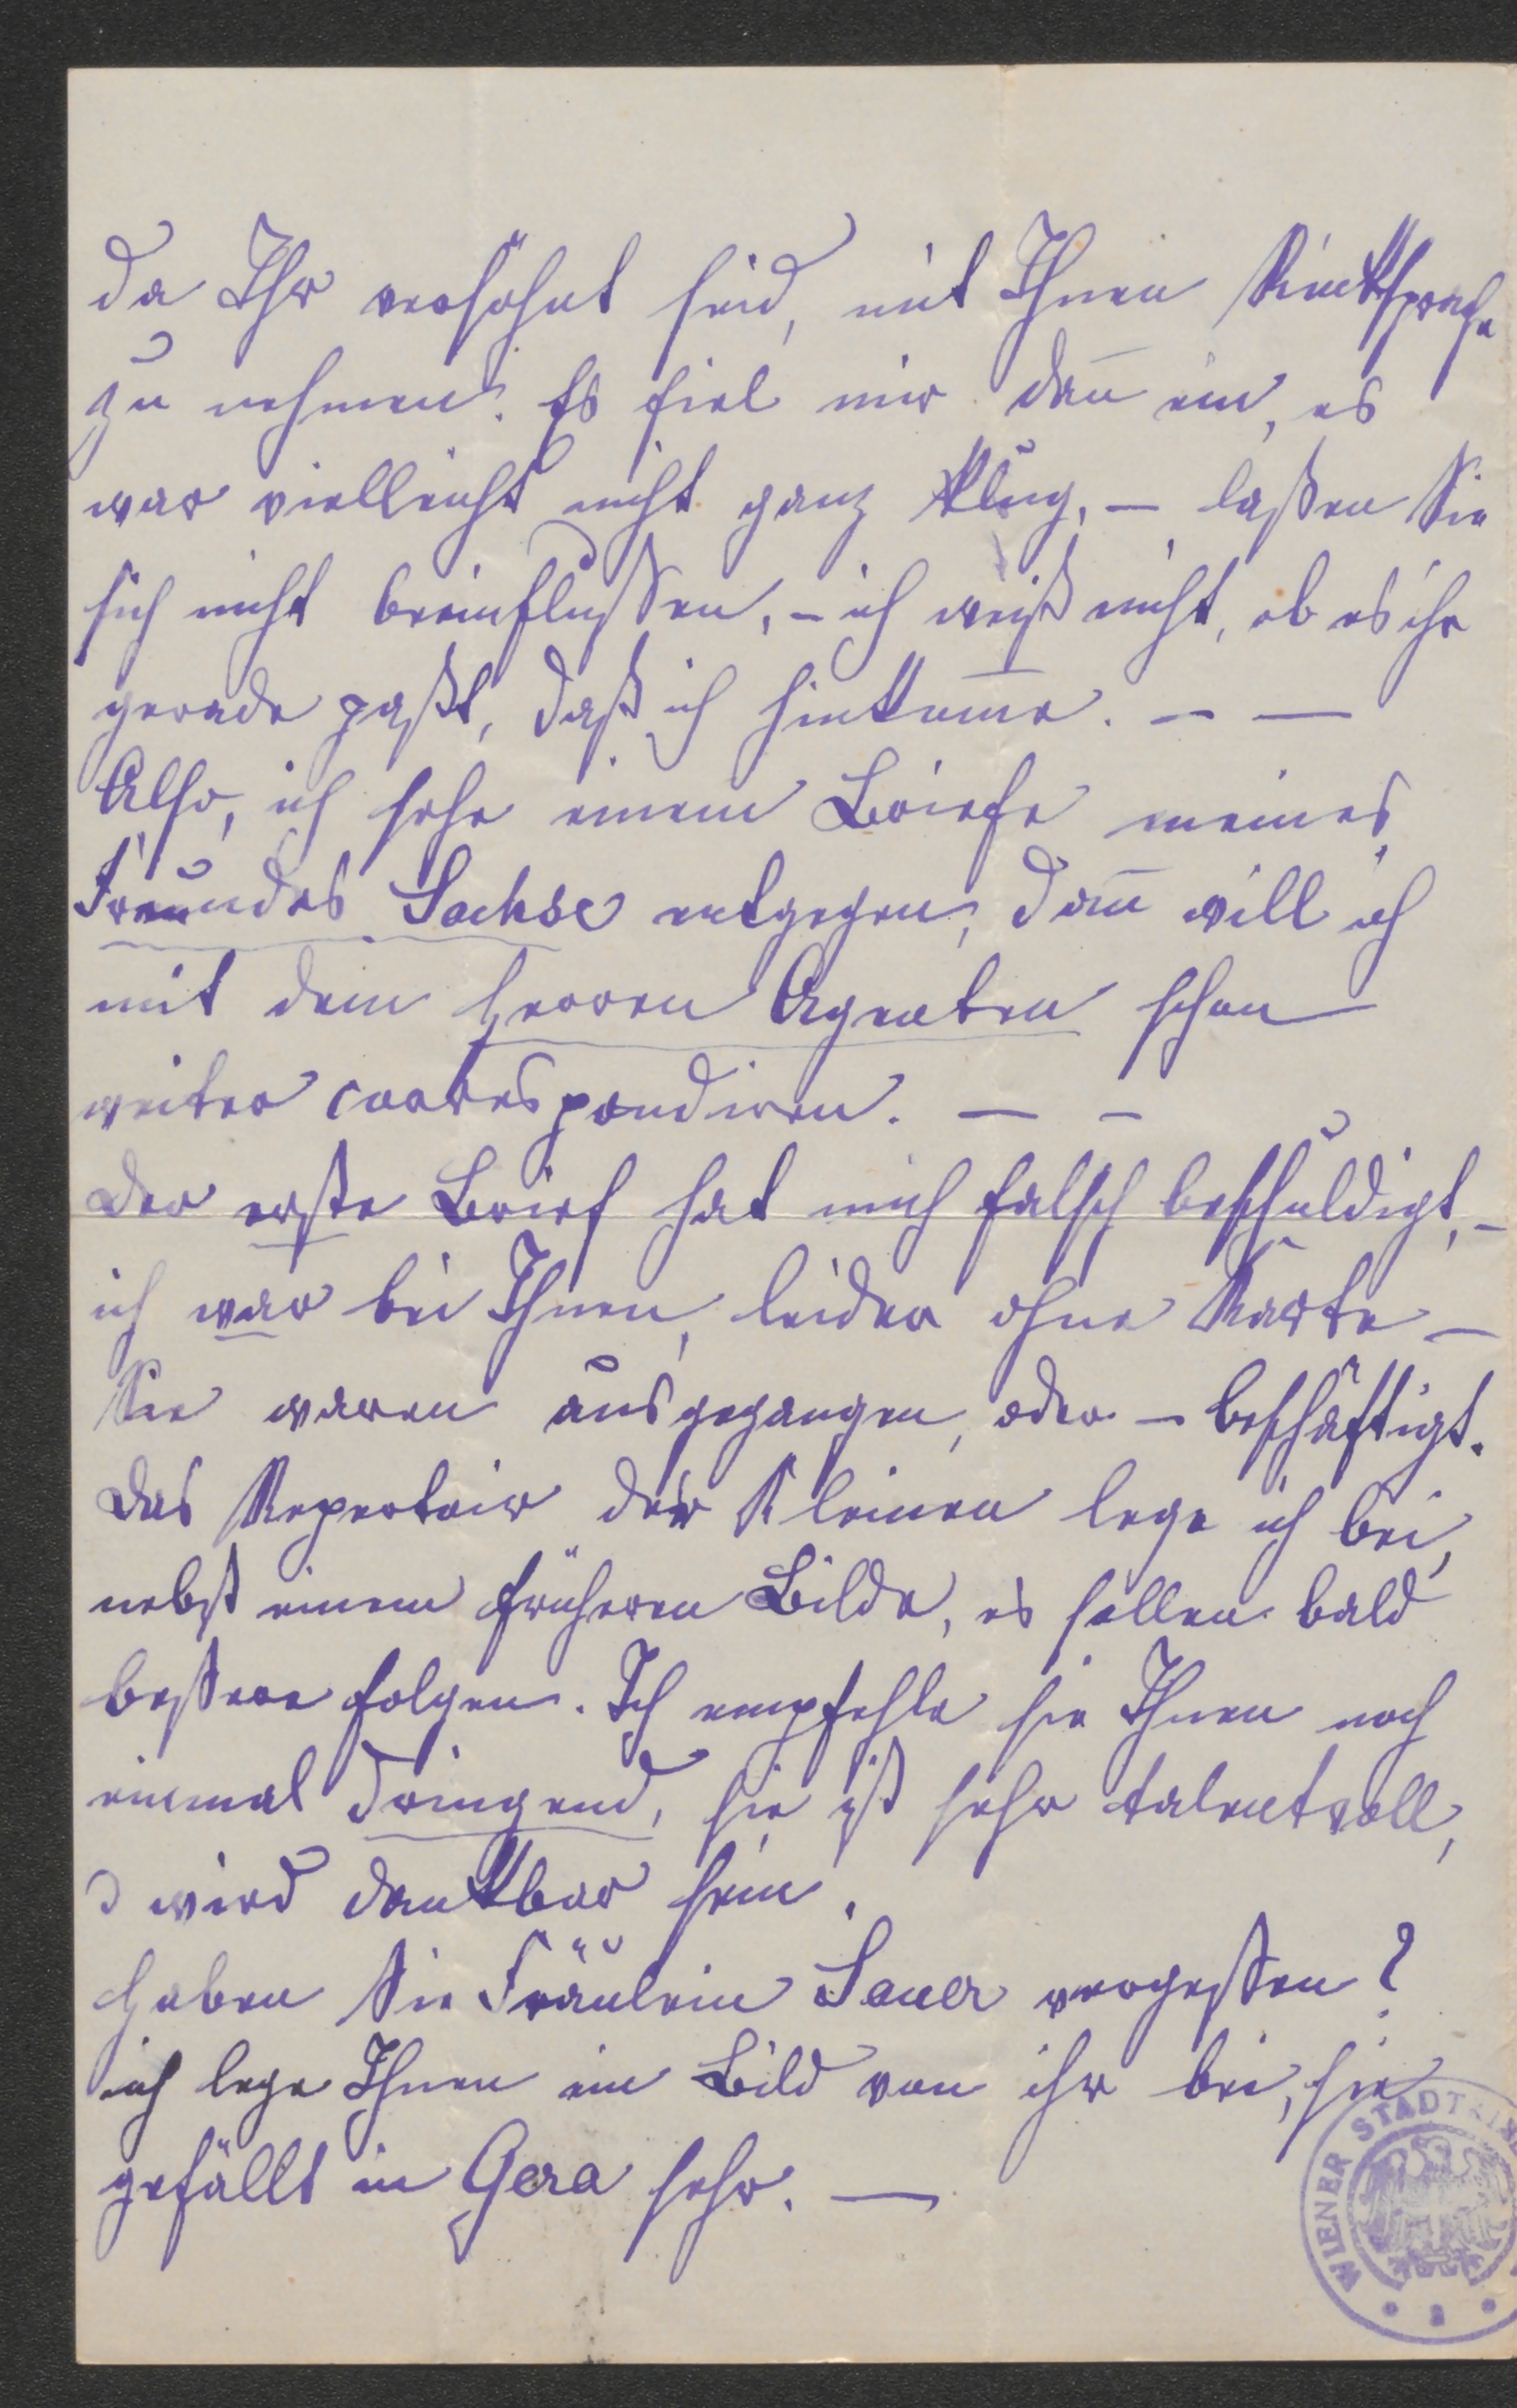 da Ihr versöhnt seid, mit Ihnen Rücksprache
zu nehmen. Es fiel mir dan̅ ein, es
war vielleicht nicht ganz klug, – laßen Sie
sich nicht beeinflußen, – ich weiß nicht, ob es ihr
gerade paßt, daß ich hinkom̅e. – –
Also, ich sehe einem Briefe meines
Freundes Sachse entgegen, dan̅ will ich
mit dem Herren Agenten schon
weiter correspondiren. – –
Der erste Brief hat mich falsch beschuldigt, –
ich war bei Ihnen, leider ohne Karte –
Sie waren ausgegangen, oder – beschäftigt.
Das Repertoir der Kleinen lege ich bei,
nebst einem früheren Bilde, es sollen bald
beßere folgen. Ich empfehle sie Ihnen noch
einmal dringend, sie ist sehr talentvoll,
wird dankbar sein.
Haben Sie Fräulein Sauer vergeßen?
ich lege Ihnen ein Bild von ihr bei, sie
gefällt in Gera sehr. –
WIENER STADT